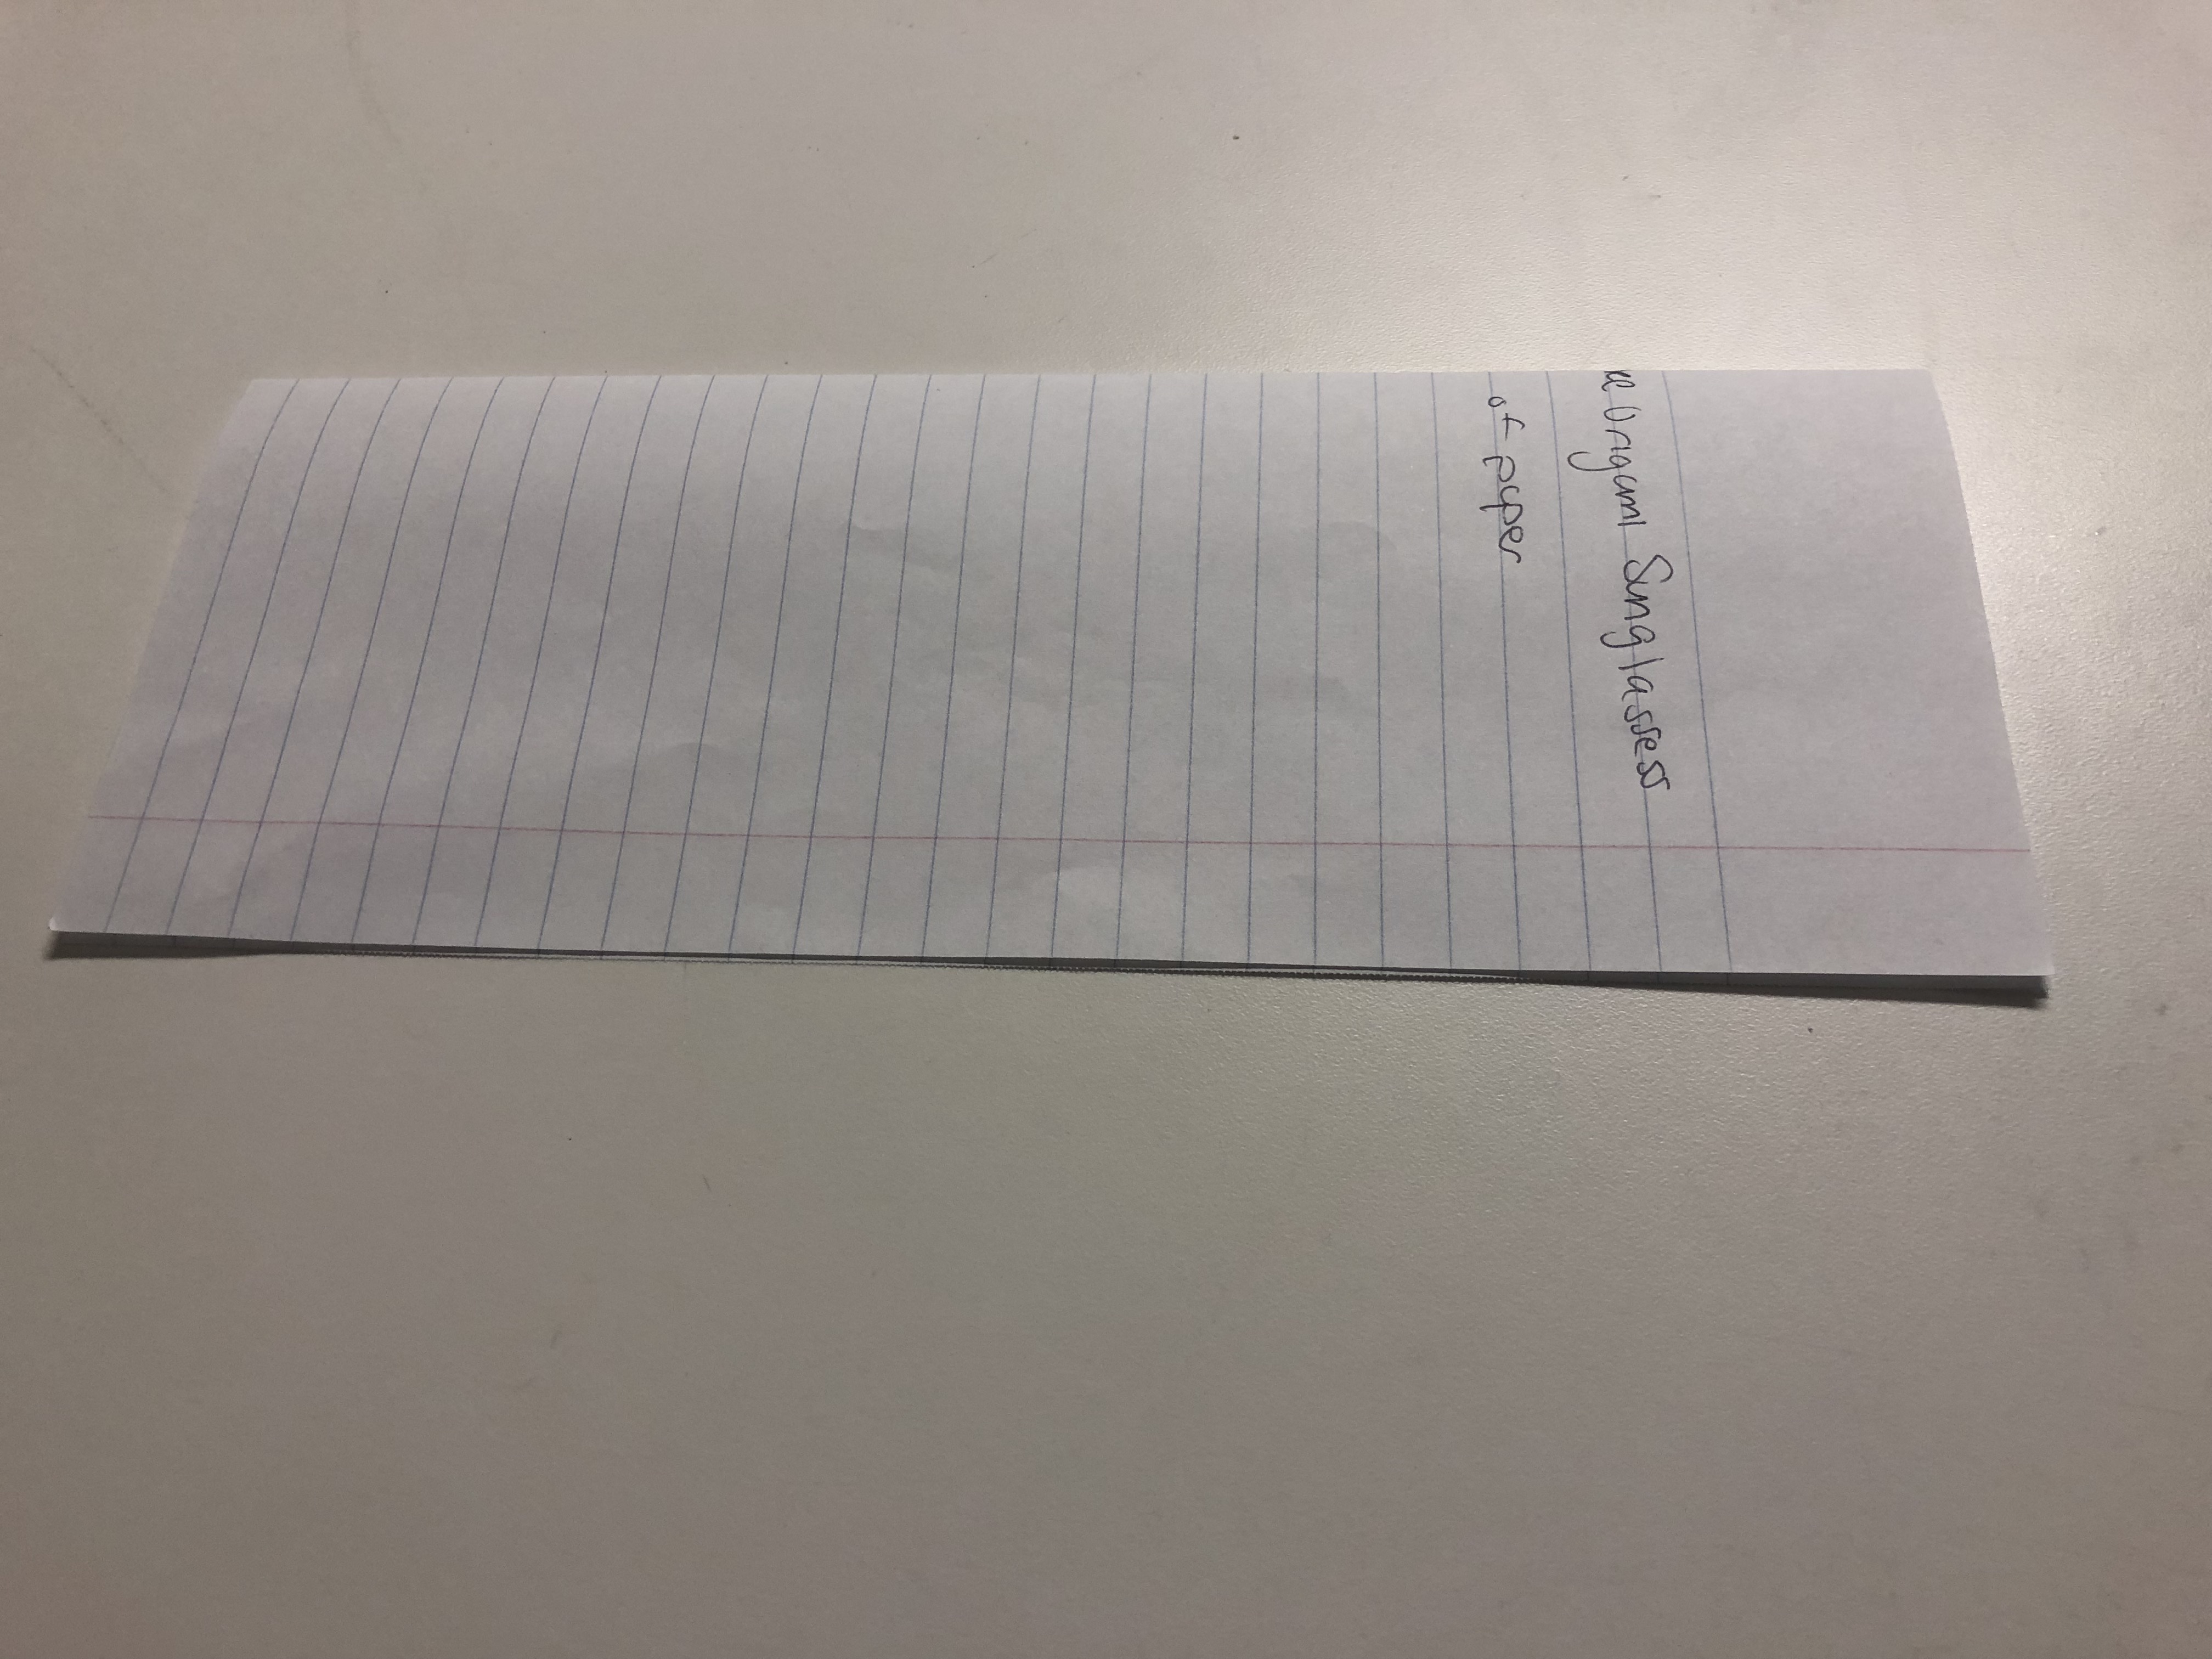 ke Origami Sunglasses
of paper